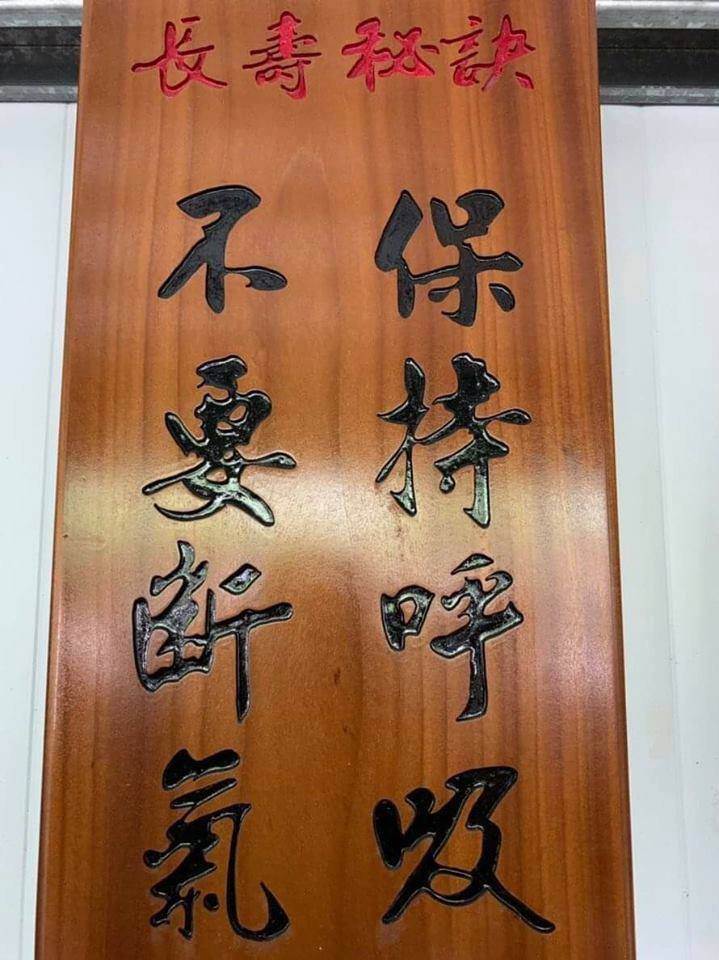 長壽秘訣
保持呼吸
不要斷氣